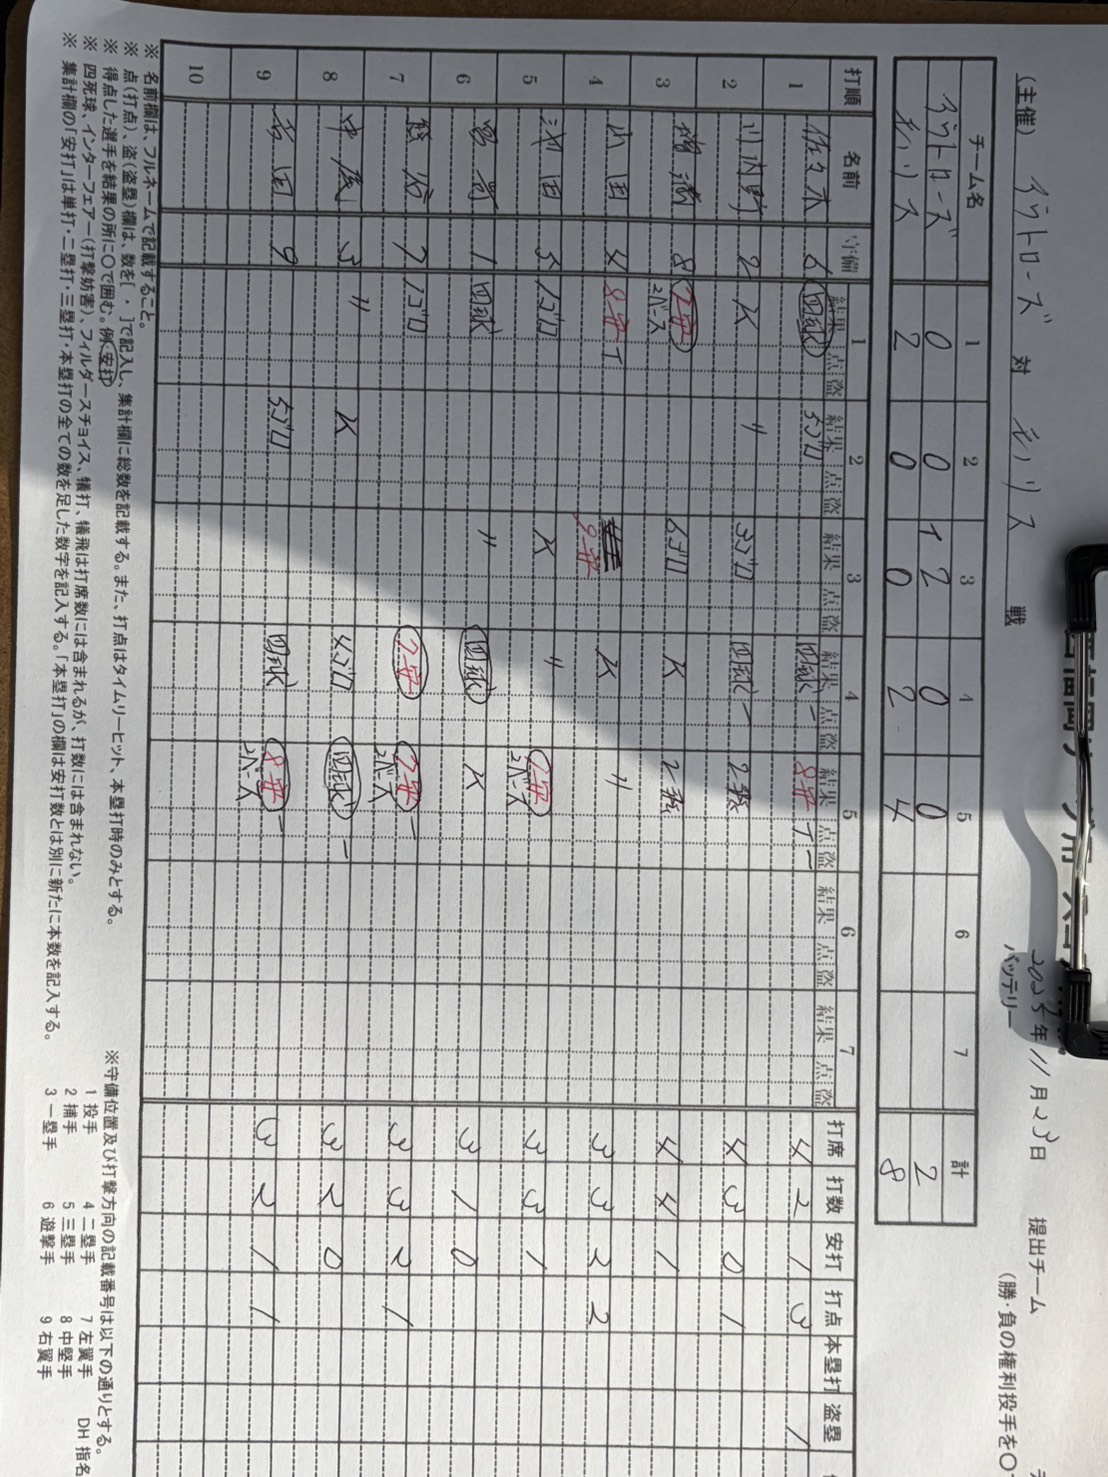 (主催) イワトローズ 対 モリス 戦
2025年11月23日 提出チーム
バッテリー (勝・負の権利投手を〇
チーム名 1 2 3 4 5 6 7 計
イワトローズ 0 0 2 0 0 2
モリス 2 0 0 2 4 8
打順 名前 守備 1 結果 点 盗 2 結果 点 盗 3 結果 点 盗 4 結果 点 盗 5 結果 点 盗 6 結果 点 盗 7 結果 点 盗 打席 打数 安打 打点 本塁打 盗塁
1 佐々木 6 四球 5ゴロ 四球 一 8安 T 一 4 2 1 3 1
2 川内野 2 K 〃 3ゴロ 四球 一 2飛 4 3 0 1
3 8 7安 2ベース 6ゴロ K 2飛 4 4 1
4 山田 4 8安 T 9安 K 〃 3 3 2 2
5 池田 5 1ゴロ K 〃 7安 2ベース 3 3 1
6 1 四球 〃 四球 K 3 1 0
7 熊谷 7 1ゴロ 7安 7安 2ベース 一 3 3 2 1
8 中尾 3 〃 K 4ゴロ 四球 一 3 2 0
9 吉田 9 5ゴロ 四球 8安 2ベース 一 3 2 1 1
10
※ 名前欄は、フルネームで記載すること。
※ 点(打点)、盗(盗塁)欄は、数を[ ・ ]で記入し、集計欄に総数を記載する。また、打点はタイムリーヒット、本塁打時のみとする。
※ 得点した選手を結果の所に〇で囲む。例 安打
※ 四死球、インターフェアー(打撃妨害)、フィルダースチョイス、犠打、犠飛は打席数には含まれるが、打数には含まれない。
※ 集計欄の「安打」は単打・二塁打・三塁打・本塁打の全ての数を足した数字を記入する。「本塁打」の欄は安打数とは別に新たに本数を記入する。
※守備位置及び打撃方向の記載番号は以下の通りとする。
1 投手 4 二塁手 7 左翼手 DH 指名
2 捕手 5 三塁手 8 中堅手
3 一塁手 6 遊撃手 9 右翼手